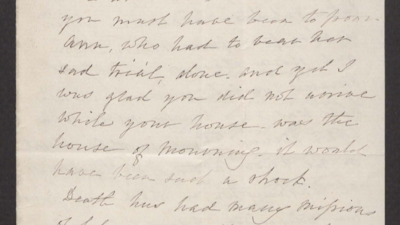 you must have been to poor
Ann, who had to bear her
sad trial, alone. and yet I
was glad you did not arrive
while your house was the
house of mourning. it would
have been such a shock.
Death has had many missions